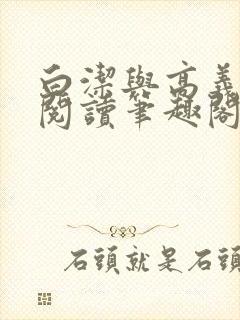 白潔與高義
閱讀筆趣閣
石頭就是石頭